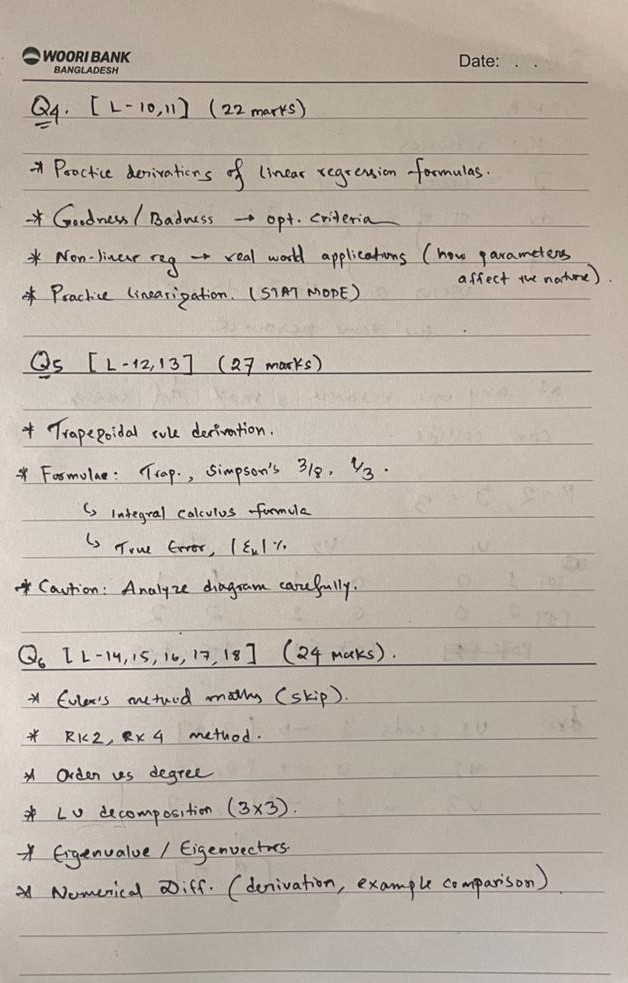 WOORI BANK
BANGLADESH
Date: . .
Q4. [L-10,11] (22 marks)
* Practice derivations of linear regression formulas.
* Goodness/Badness → opt. criteria
* Non-linear reg → real world applications (how parameters
affect the nature).
* Practice linearization. (STAT MODE)
Q5 [L-12,13] (27 marks)
* Trapezoidal rule derivation.
* Formulae: Trap., Simpson's 3/8, 1/3.
↳ Integral calculus formula
↳ True Error, |εt| %.
* Caution: Analyze diagram carefully.
Q6 [L-14,15,16,17,18] (24 marks).
* Euler's method maths (skip).
* RK2, RK4 method.
* Order vs degree
* LU decomposition (3×3).
* Eigenvalue / Eigenvectors.
* Numerical Diff. (derivation, example comparison)